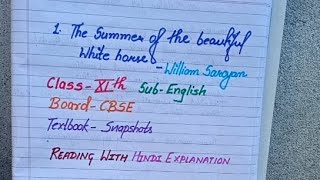 1. The Summer of the beautiful
White horse
- William Saroyan
Class - XIth Sub - English
Board - CBSE
Textbook - Snapshots
READING WITH HINDI EXPLANATION